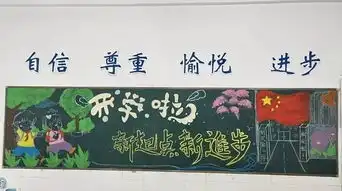 自信 尊重 愉悦 进步
开学啦
新起点新進步